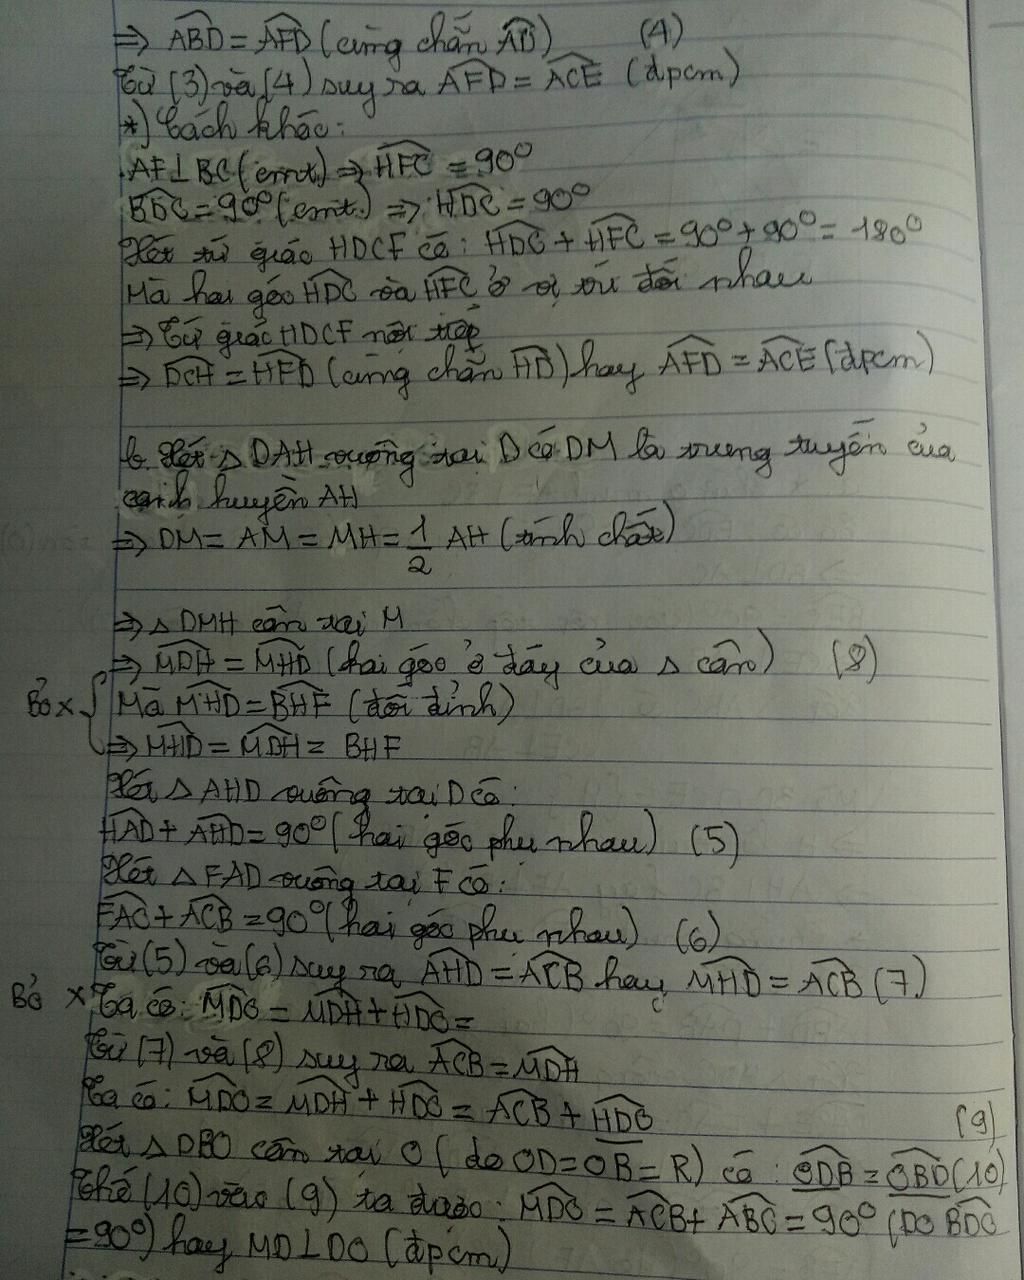 ⇒ ABD = AFD (cùng chắn AD) (4)
Từ (3) và (4) suy ra AFD = ACE (đpcm)
*) Cách khác:
AF⊥BC (cmt) ⇒ HFC = 90°
BDC = 90° (cmt) ⇒ HDC = 90°
Xét tứ giác HDCF có: HDC + HFC = 90° + 90° = 180°
Mà hai góc HDC và HFC ở vị trí đối nhau
⇒ Tứ giác HDCF nội tiếp
⇒ DCH = HFD (cùng chắn HD) hay AFD = ACE (đpcm)
b. Xét Δ DAH vuông tại D có DM là trung tuyến của
cạnh huyền AH
⇒ DM = AM = MH = 1/2 AH (tính chất)
⇒ Δ DMH cân tại M
⇒ MDH = MHD (hai góc ở đáy của Δ cân) (8)
Bỏ x { Mà MHD = BHF (đối đỉnh)
⇒ MHD = MDH = BHF
Xét Δ AHD vuông tại D có:
HAD + AHD = 90° (hai góc phụ nhau) (5)
Xét Δ FAD vuông tại F có:
FAC + ACB = 90° (hai góc phụ nhau) (6)
Từ (5) và (6) suy ra AHD = ACB hay MHD = ACB (7)
Bỏ x Ta có: MDO = MDH + HDO =
Từ (7) và (8) suy ra ACB = MDH
Ta có: MDO = MDH + HDO = ACB + HDO (9)
Xét Δ DBO cân tại O (do OD = OB = R) có: ODB = OBD (10)
Thế (10) vào (9) ta được: MDO = ACB + ABC = 90° (Do BDC
= 90°) hay MD⊥DO (đpcm)